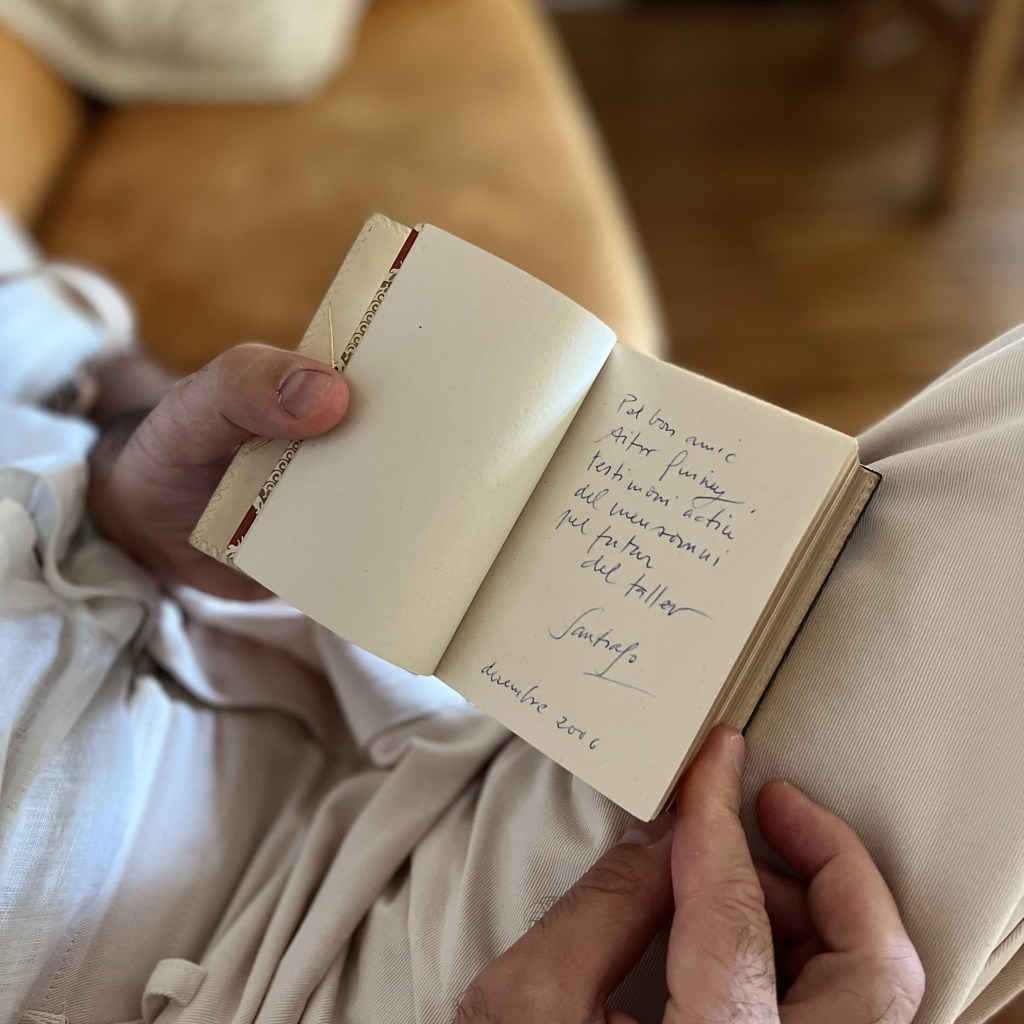 Pel bon amic
Aitor Quiney,
testimoni actiu
del meu somni
pel futur
del taller
Santiago
desembre 2006